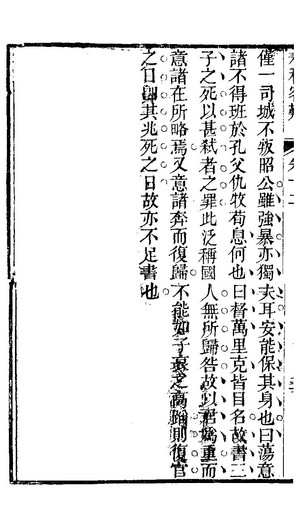 僅一司城不叛昭公雖強暴亦獨夫耳安能保其身也曰蕩意
諸不得班於孔父仇牧荀息何也曰督萬里克皆目名故書三
子之死以甚弒者之罪此泛稱國人無所歸咎故以君爲重而
意諸在所略焉又意諸奔而復歸不能如子哀之高蹈則復官
之日卽其兆死之日故亦不足書也